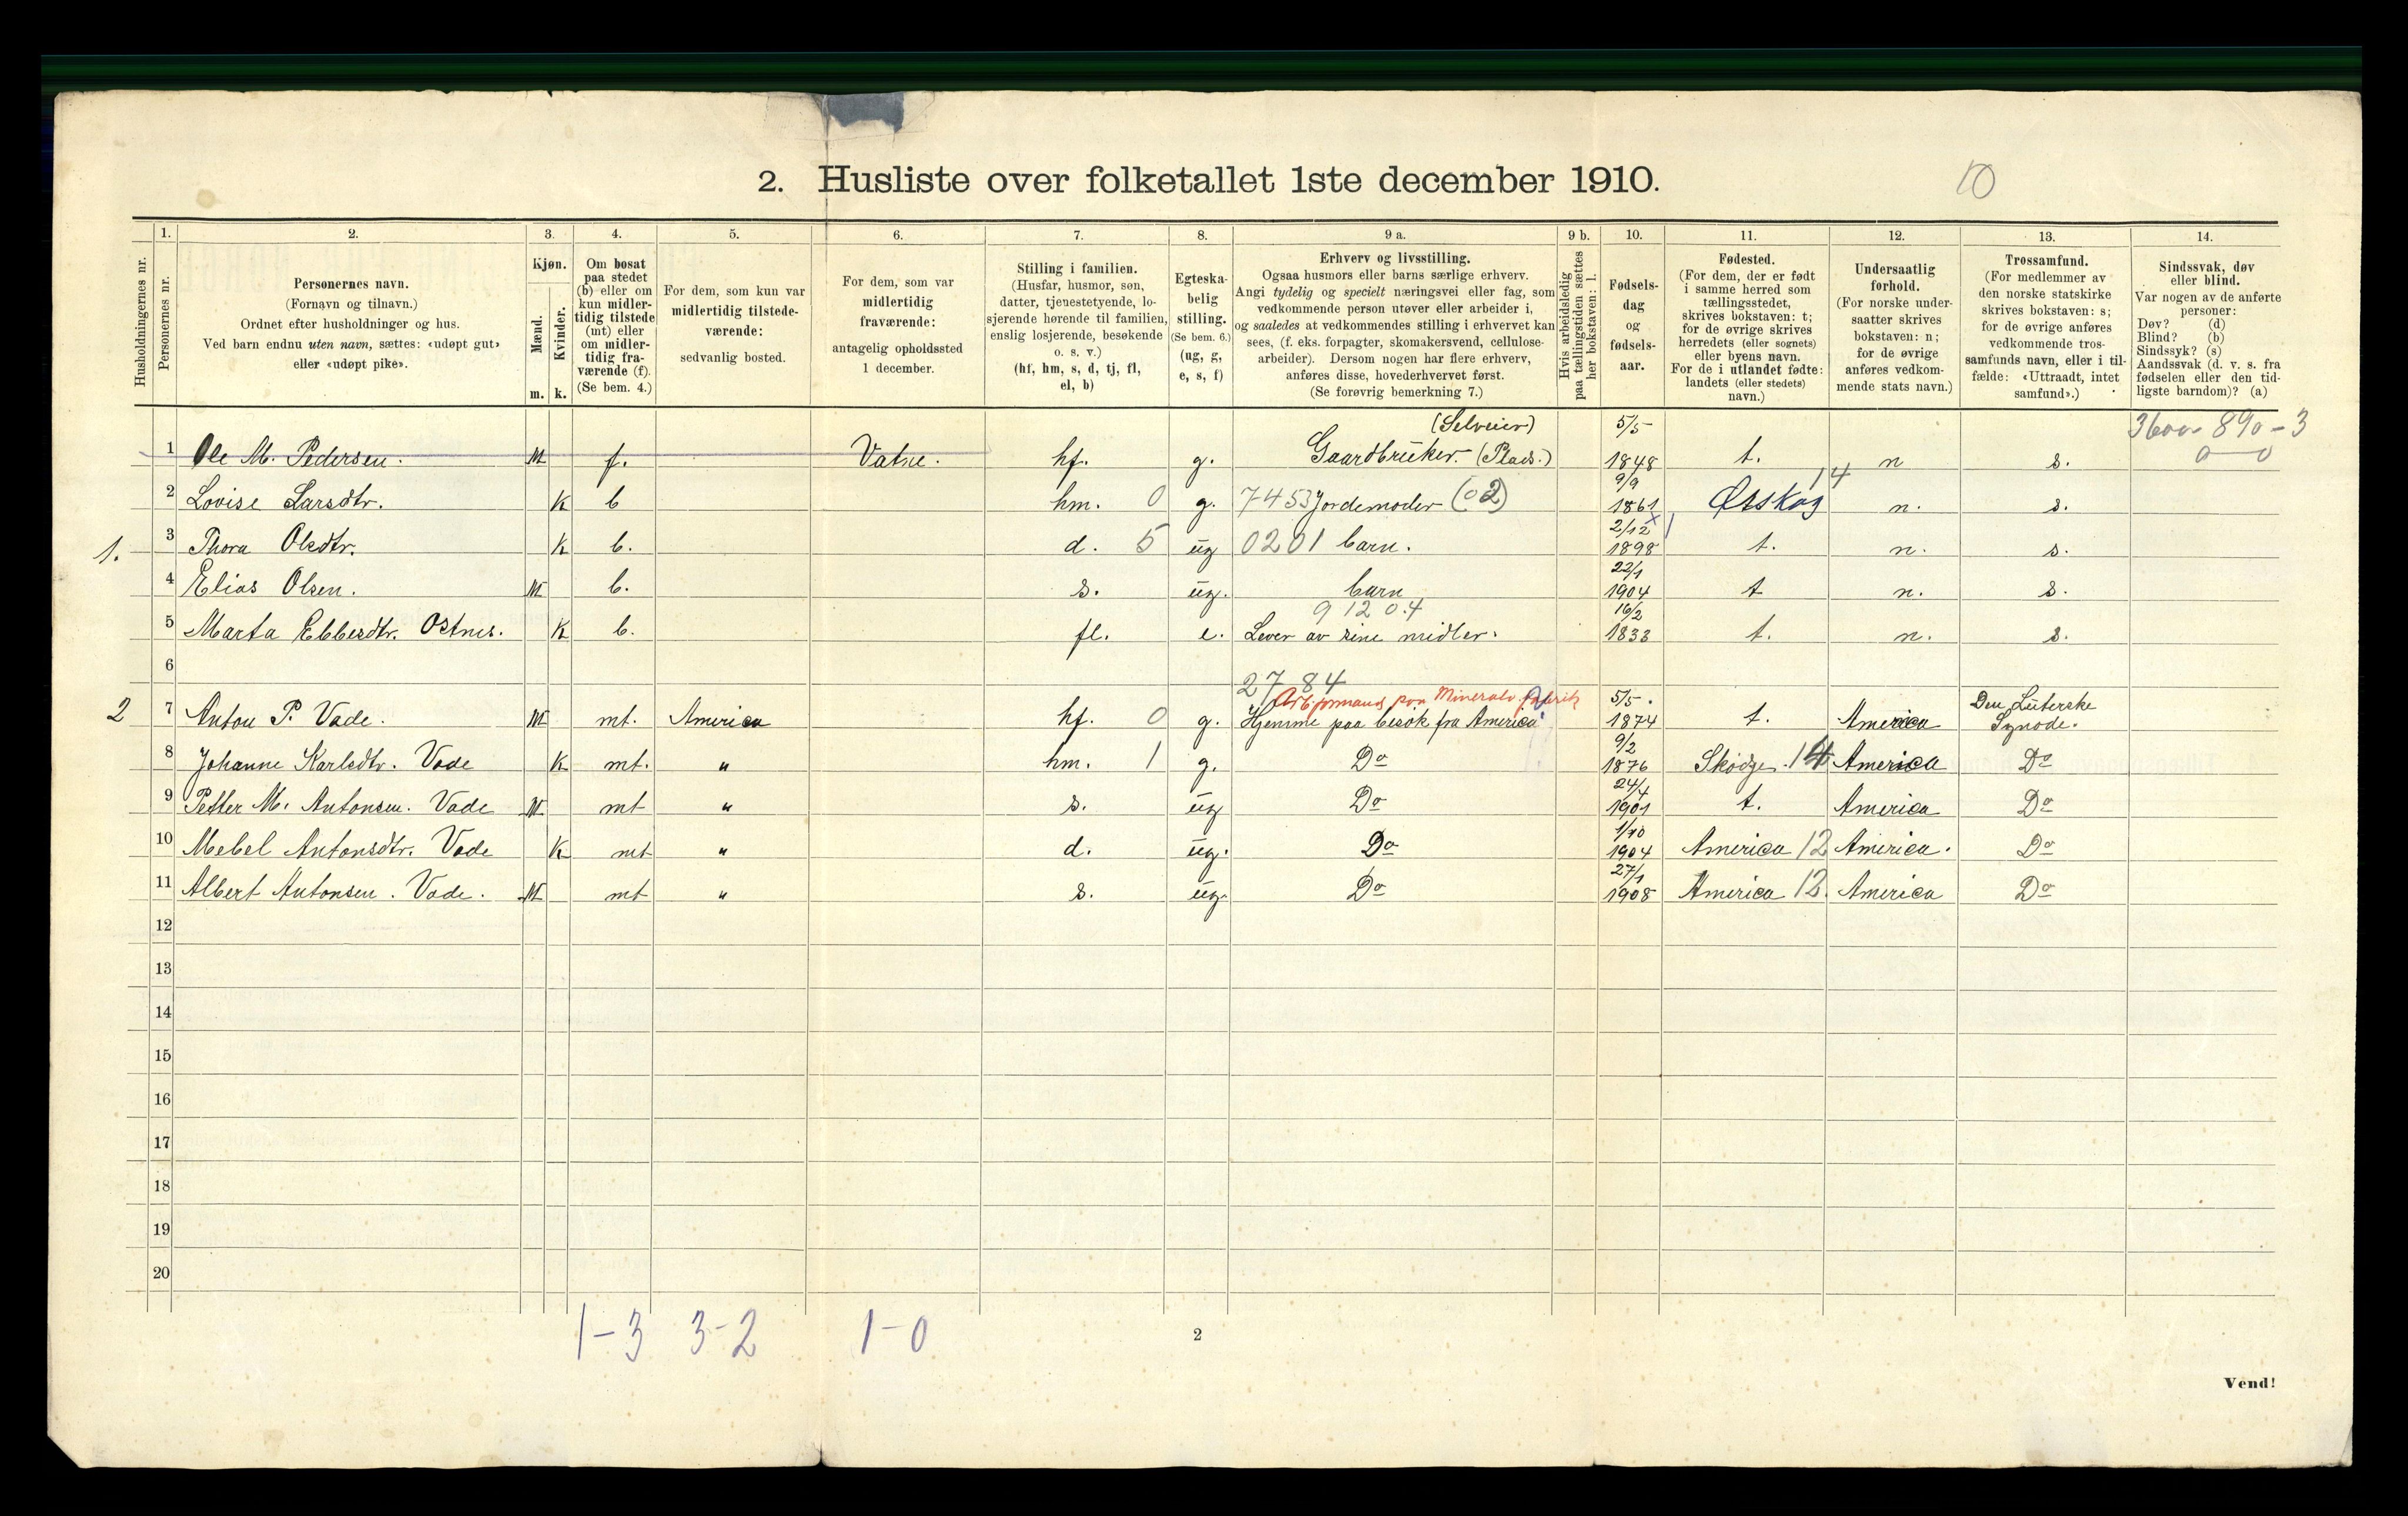 2. Husliste over folketallet 1ste december 1910.
10
Husholdningernes nr.
1. Personernes nr.
2. Personernes navn.
(Fornavn og tilnavn.)
Ordnet efter husholdninger og hus.
Ved barn endnu uten navn, sættes: «udøpt gut»
eller «udøpt pike».
3. Kjøn.
Mænd. m.
Kvinder. k.
4. Om bosat
paa stedet
(b) eller om
kun midler-
tidig tilstede
(mt) eller
om midler-
tidig fra-
værende (f).
(Se bem. 4.)
5. For dem, som kun var
midlertidig tilstede-
værende:
sedvanlig bosted.
6. For dem, som var
midlertidig
fraværende:
antagelig opholdssted
1 december.
7. Stilling i familien.
(Husfar, husmor, søn,
datter, tjenestetyende, lo-
sjerende hørende til familien,
enslig losjerende, besøkende
o. s. v.)
(hf, hm, s, d, tj, fl,
el, b)
8. Egteska-
belig
stilling.
(Se bem. 6.)
(ug, g,
e, s, f)
9 a. Erhverv og livsstilling.
Ogsaa husmors eller barns særlige erhverv.
Angi tydelig og specielt næringsvei eller fag, som
vedkommende person utøver eller arbeider i,
og saaledes at vedkommendes stilling i erhvervet kan
sees, (f. eks. forpagter, skomakersvend, cellulose-
arbeider). Dersom nogen har flere erhverv,
anføres disse, hovederhvervet først.
(Se forøvrig bemerkning 7.)
9 b. Hvis arbeidsledig
paa tællingstiden sættes
her bokstaven: l.
10. Fødsels-
dag
og
fødsels-
aar.
11. Fødested.
(For dem, der er født
i samme herred som
tællingsstedet,
skrives bokstaven: t;
for de øvrige skrives
herredets (eller sognets)
eller byens navn.
For de i utlandet fødte:
landets (eller stedets)
navn.)
12. Undersaatlig
forhold.
(For norske under-
saatter skrives
bokstaven: n;
for de øvrige
anføres vedkom-
mende stats navn.)
13. Trossamfund.
(For medlemmer av
den norske statskirke
skrives bokstaven: s;
for de øvrige anføres
vedkommende tros-
samfunds navn, eller i til-
fælde: «Uttraadt, intet
samfund».)
14. Sindssvak, døv
eller blind.
Var nogen av de anførte
personer:
Døv? (d)
Blind? (b)
Sindssyk? (s)
Aandssvak (d. v. s. fra
fødselen eller den tid-
ligste barndom)? (a)
(Selveier) 5/5 3600 - 890 - 3
1 Ole M. Pedersen. M f. Vatne. hf. g. Gaardbrüker. (Plads.) 1848 t. n s. 0 - 0
9/9 14
2 Lovise Larsdtr. K b hm. 0 g. 7453 Jordemoder (02) 1861 Ørskog n. s.
2/12
1. 3 Thora Olsdtr. K b. d. 5 ug 0201 barn. 1898 t. n. s.
22/1
4 Elias Olsen. M b. s. ug. barn 1904 t n. s.
9120.4 16/2
5 Marta Ebbesdtr. Ostnes. K b. fl. e. Lever av sine midler. 1833 t. n. s.
6
2784
Arb.formand paa Mineralv.fabrik 5/5. Den Luterske
2 7 Anton P. Vade. M mt. America hf. 0 g. Hjemme paa besøk fra America. 1874 t. America Synode.
9/2
8 Johanne Karlsdtr. Vade K mt. " hm. 1 g. Do 1876 Skodje. 14 America Do
24/4
9 Petter M. Antonsen. Vade M mt " s. ug Do 1901 t. America Do
1/10
10 Mebel Antonsdtr. Vade K mt " d. ug. Do 1904 America 12 America. Do
27/1
11 Albert Antonsen. Vade. M mt " s. ug. Do 1908 America 12. America Do
12
13
14
15
16
17
18
19
20
1-3 3-2 1-0
2
Vend!